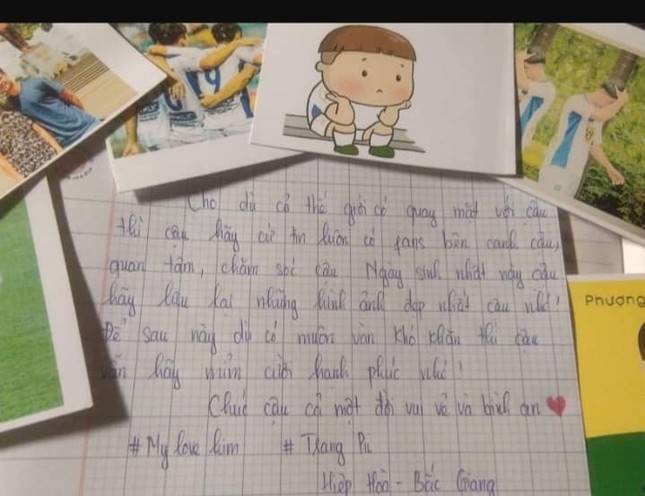 Phượng
Cho dù cả thế giới có quay mặt với cậu
thì cậu hãy cứ tin luôn có fans bên cạnh cậu,
quan tâm, chăm sóc cậu. Ngày sinh nhật này cậu
hãy lưu lại những hình ảnh đẹp nhất cậu nhé!
Để sau này dù có muôn vàn khó khăn thì cậu
vẫn hãy mỉm cười hạnh phúc nhé!
Chúc cậu cả một đời vui vẻ và bình an ❤
# My love kim # Trang Pu
Hiệp Hoà - Bắc Giang